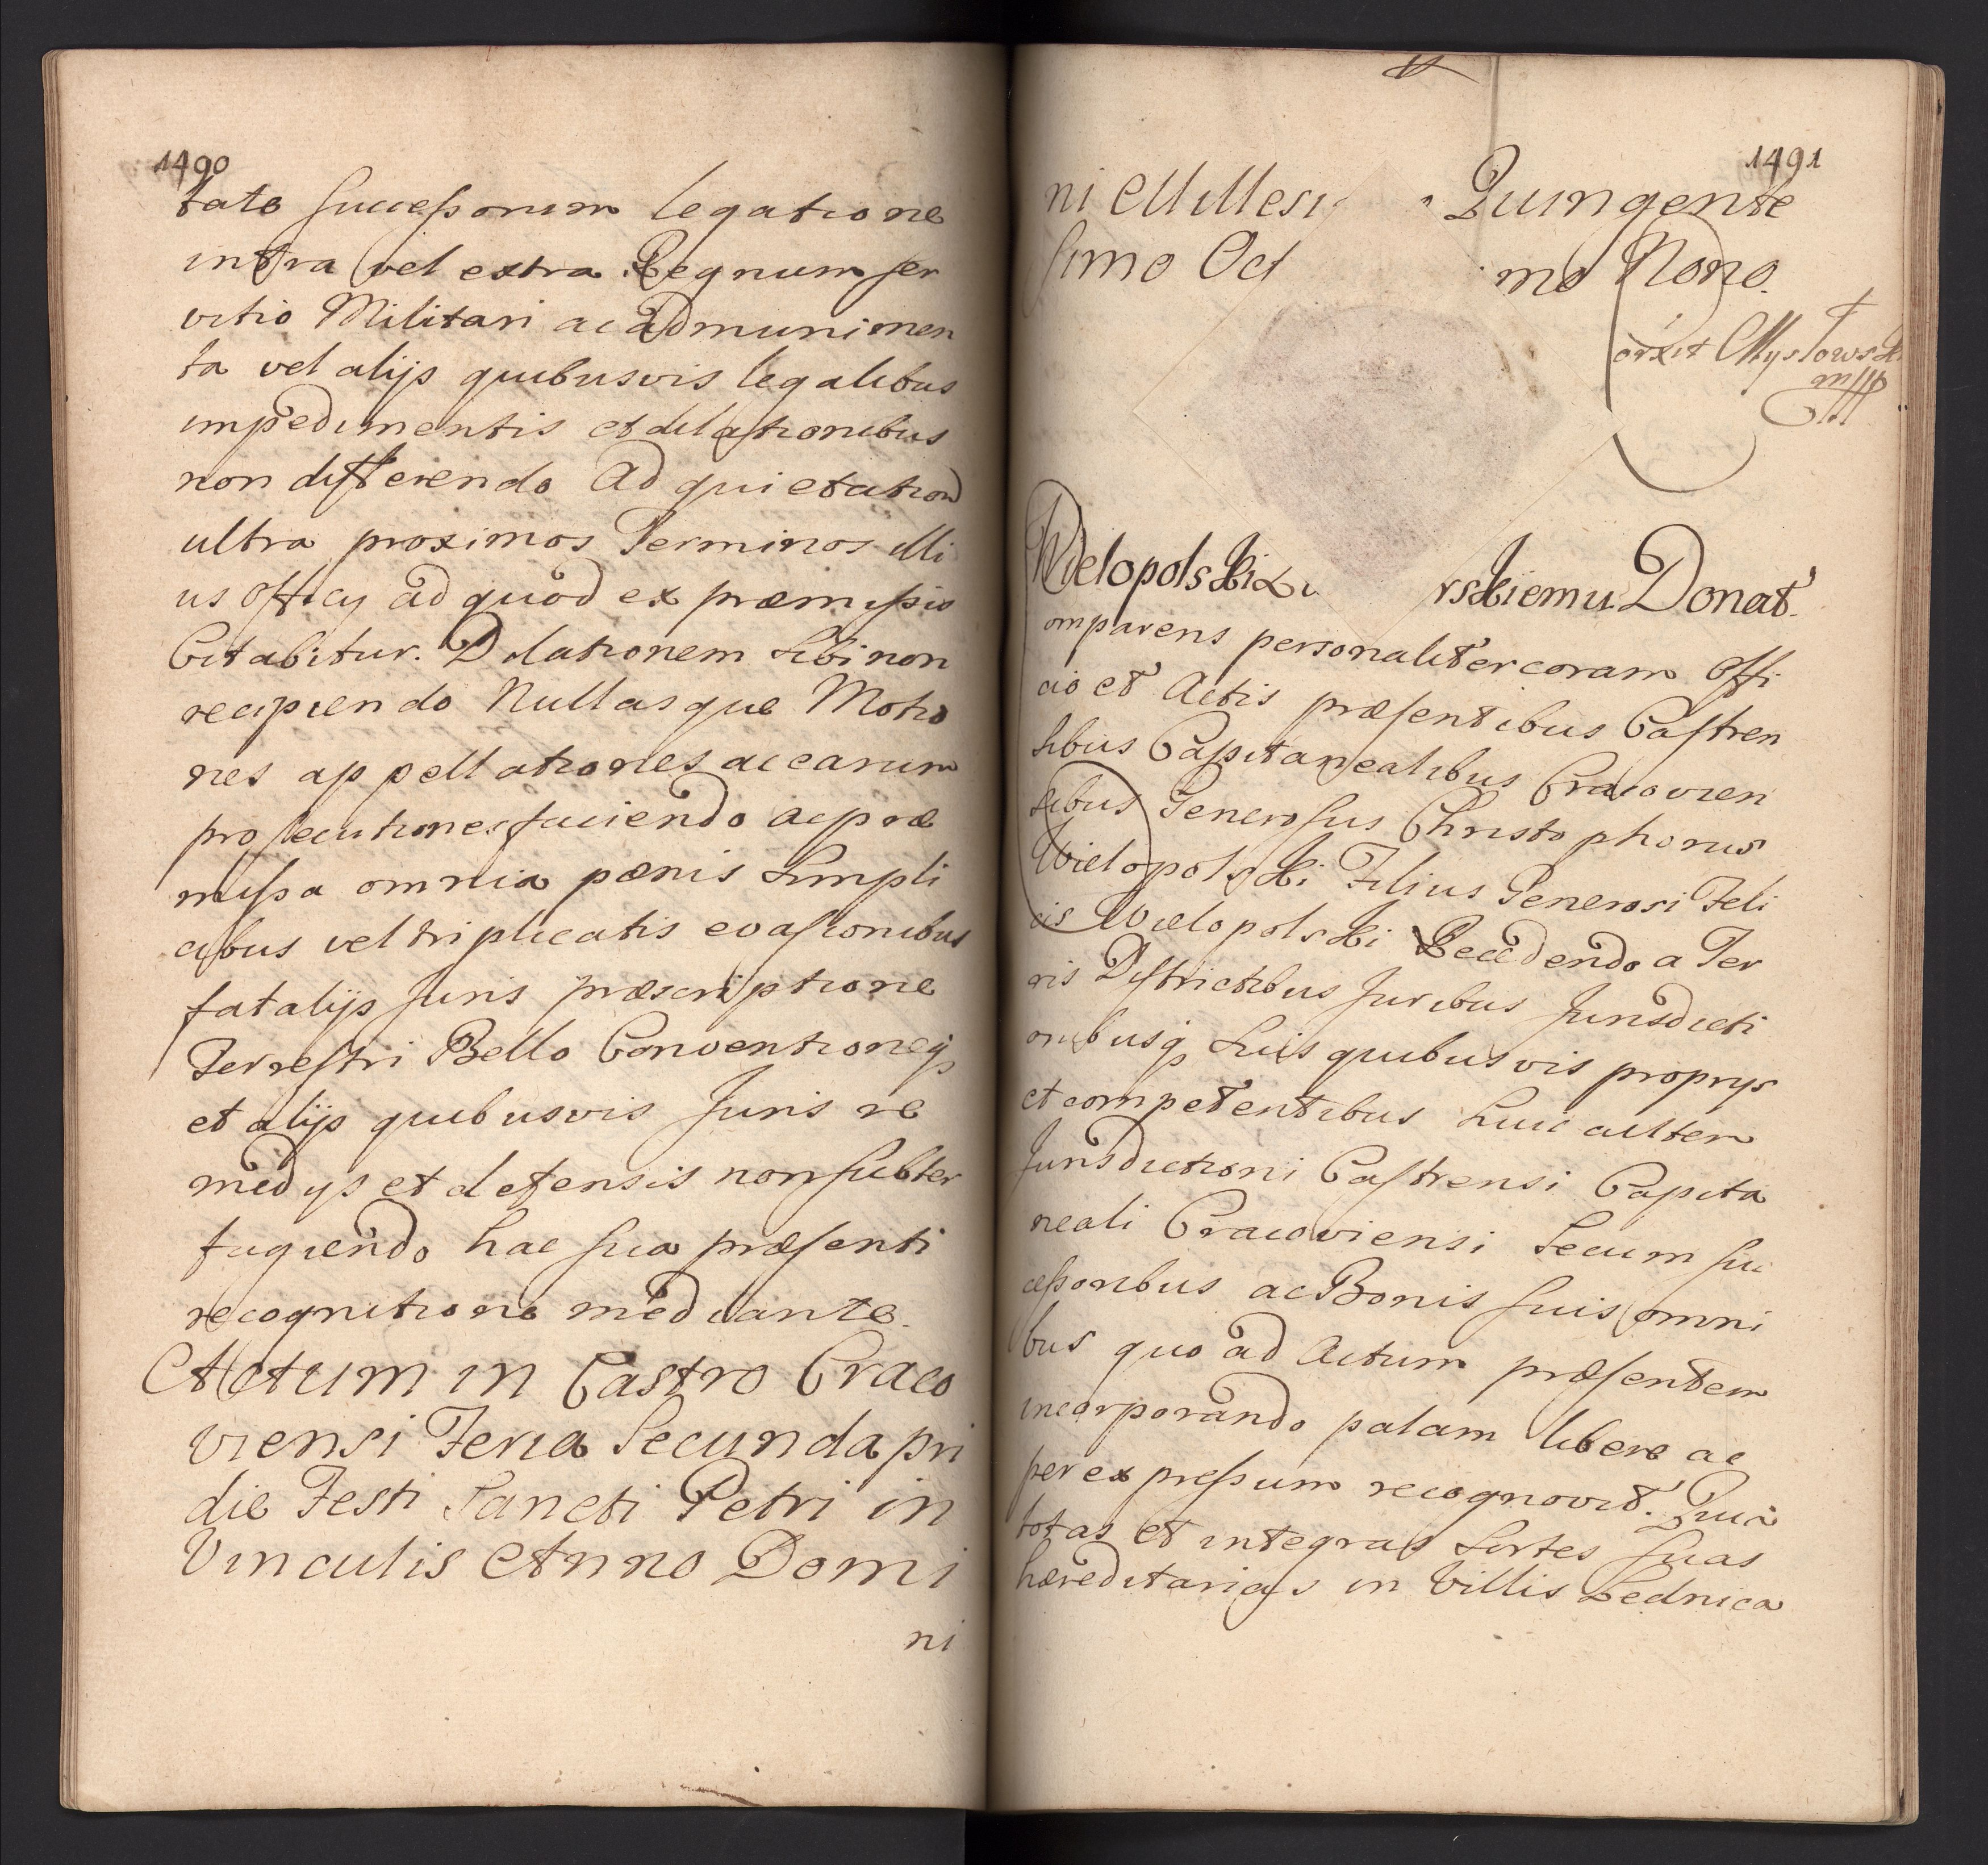 1490
tate successorum legatione
intra vel extra Regnum ser
vitio Militari ac ad munimen
ta vel alijs quibusvis legalibus
impedimentis et dilationibus
non differendo ad quietation
ultra proximos Terminos illi
us Officij ad quod ex præmissis
Citabitur. Dilationem sibi non
recipiendo Nullasque Motio
nes appellationes ac earum
prosecutiones faciendo ac præ
missa omnia pœnis simpli
cibus vel triplicatis evasionibus
fatalijs Juris præscriptione
Terrestri Bello Conventioneq
et alijs quibusvis Juris re
medijs et defensis non subter
fugiendo hac sua præsenti
recognitione mediante.
Actum in Castro Craco
viensi Feria Secunda pri
die Festi Sancti Petri in
Vinculis Anno Domi
ni
1491
ni Millesi Quingente
simo Oct mo Nono.
Wielopolski rskiemu Donat
omparens personaliter coram Offi
cio et Actis præsentibus Castren
sibus Capitanealibus Cracovien
sibus Generosus Christophorus
Wielopolski Filius Generosi Feli
cis Wielopolski Recedendo a Ter
ris Districtibus Juribus Jurisdicti
onibusq suis quibusvis proprijs
et competentibus huic autem
Jurisdictioni Castrensi Capita
neali Cracoviensi se cum suc
cessoribus ac Bonis suis omni
bus quo ad Actum præsentem
incorporando palam libere ac
per expressum recognovit. Quia
totas et integras Sortes suas
hæreditarias in Villis Lednica